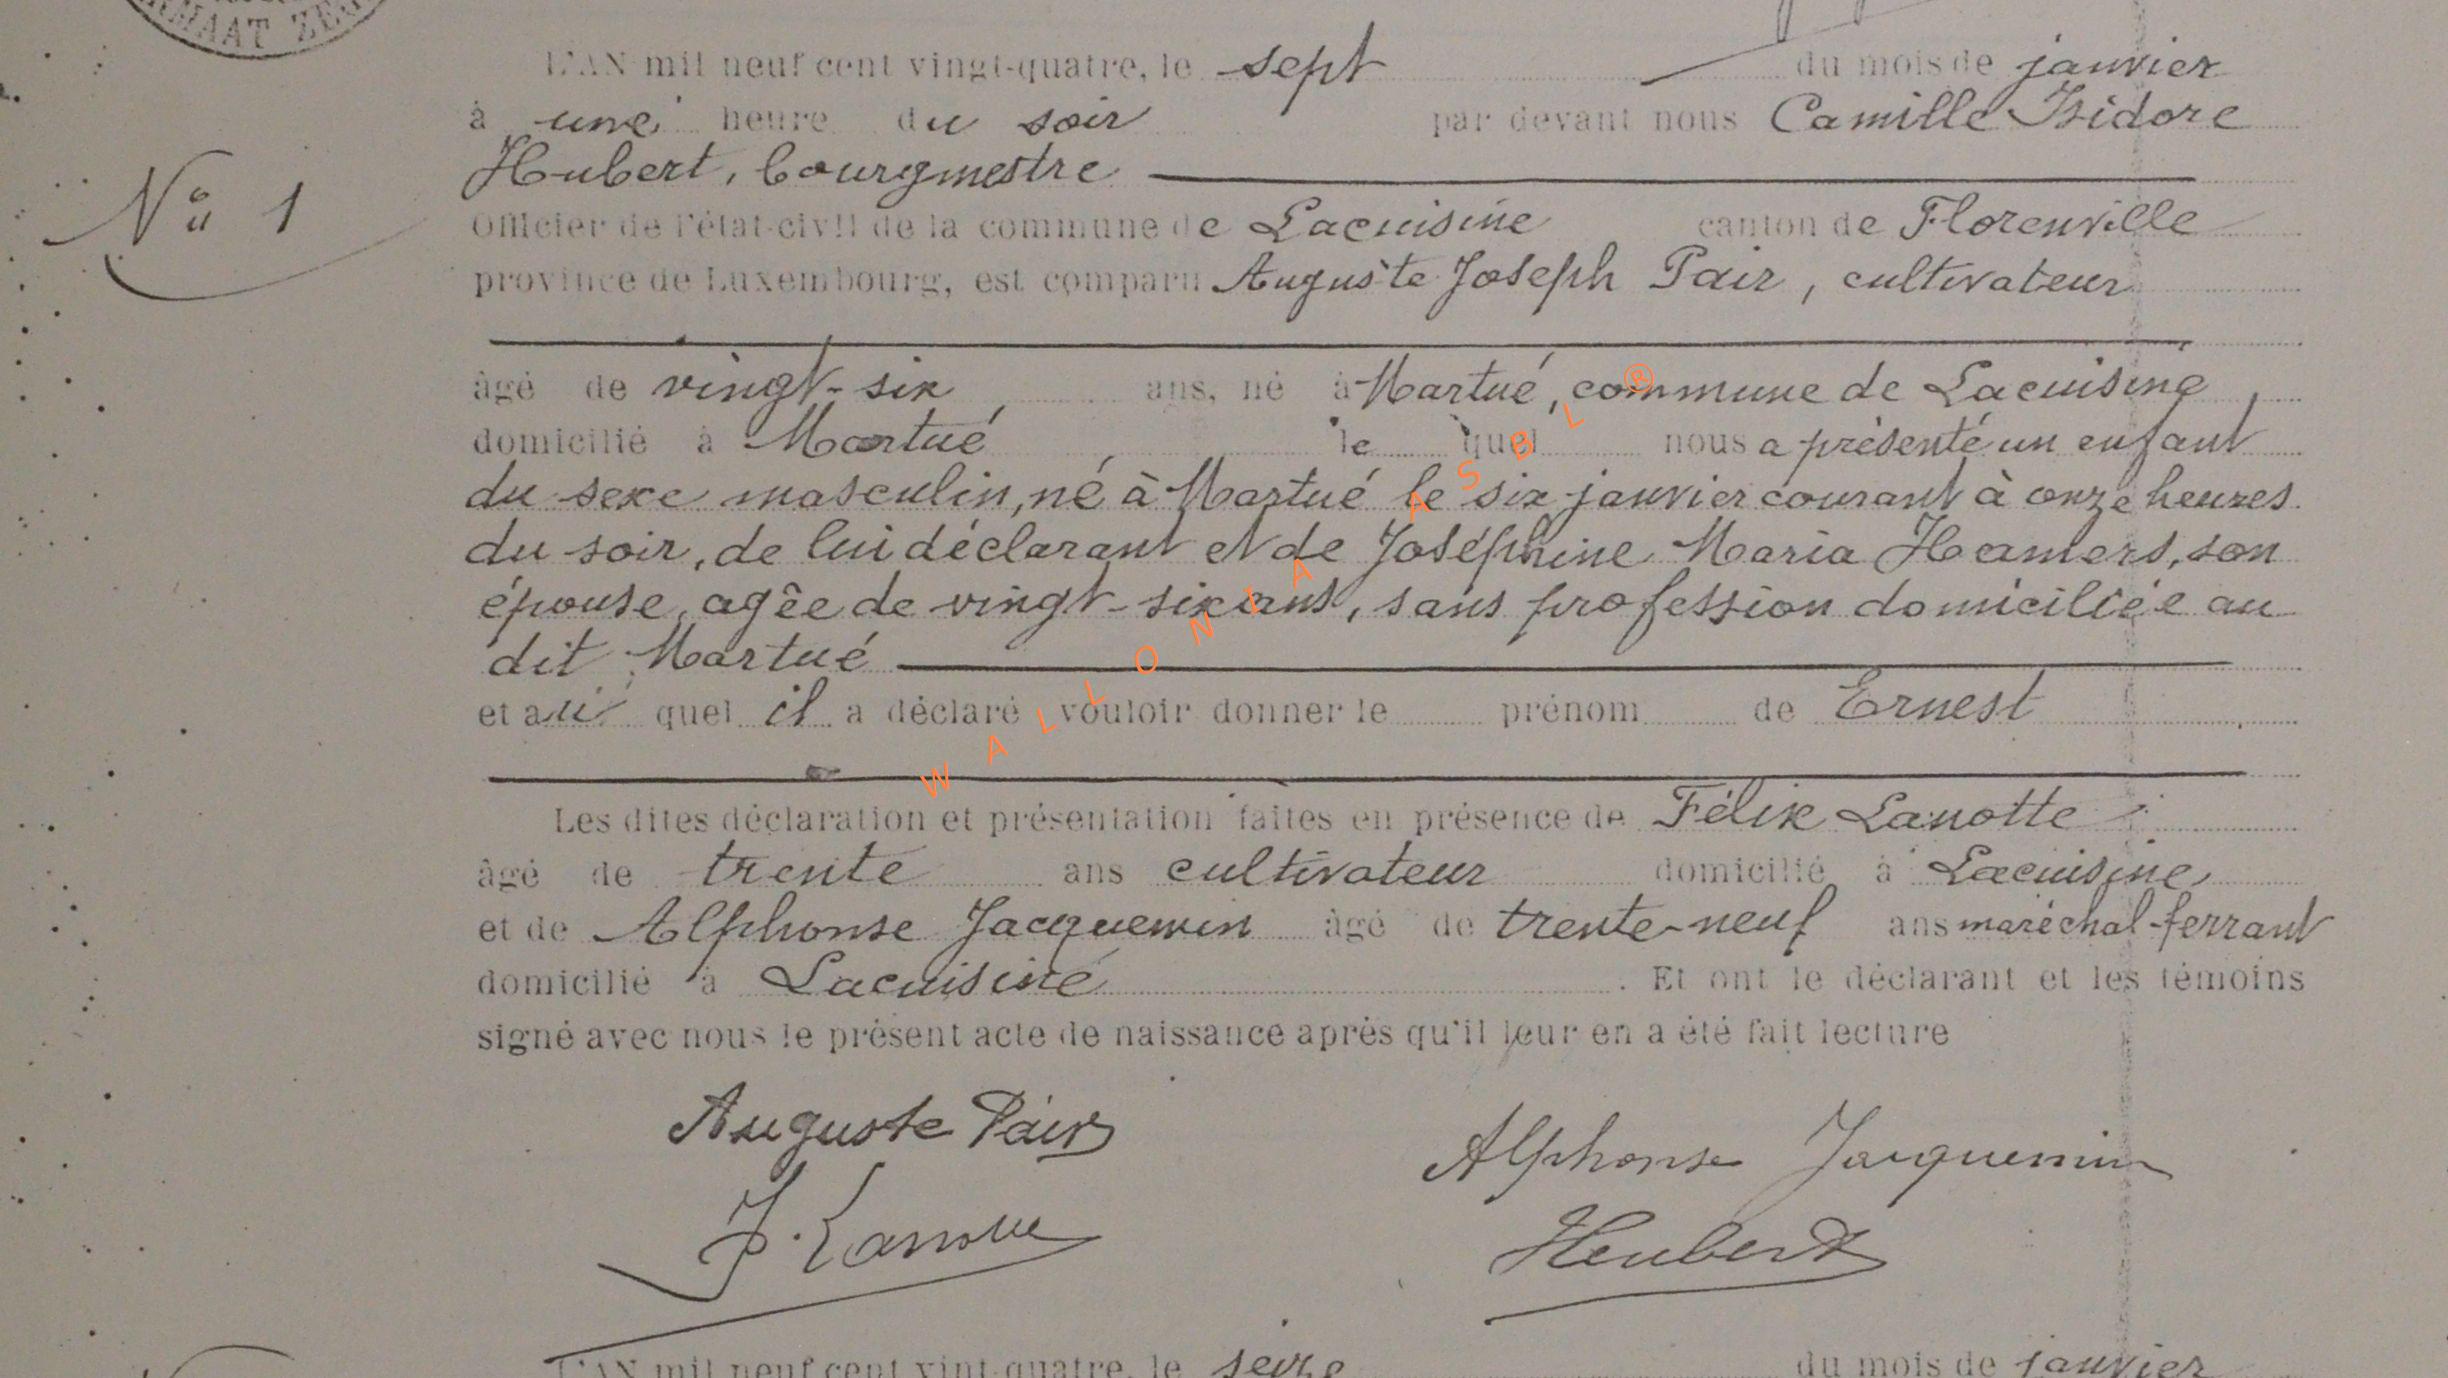 RMAAT ZE
L'AN mil neuf cent vingt-quatre, le sept du mois de janvier
à une heure du soir par devant nous Camille Isidore
Hubert, bourgmestre
Officier de l'état-civil de la commune de Lacuisine canton de Florenville
province de Luxembourg, est comparu Auguste Joseph Pair, cultivateur
No 1
âgé de vingt-six ans, né à Martué, commune de Lacuisine,
domicilié à Martué, le quel nous a présenté un enfant
du sexe masculin, né à Martué le six janvier courant à onze heures
du soir, de lui déclarant et de Joséphine Maria Hamers, son
épouse, agêe de vingt-six ans, sans profession domiciliée au
dit Martué
et au quel il a déclaré vouloir donner le prénom de Ernest
WALLONIA ASBL ®
Les dites déclaration et présentation faites en présence de Félix Lanotte
âgé de trente ans cultivateur domicilié à Lacuisine
et de Alphonse Jacquemin âgé de trente-neuf ans maréchal-ferrant
domicilié à Lacuisine. Et ont le déclarant et les témoins
signé avec nous le présent acte de naissance après qu'il leur en a été fait lecture
Auguste Pair
Alphonse Jacquemin
F. Lanotte
Heubert
L'AN mil neuf cent vint-quatre, le seize du mois de janvier